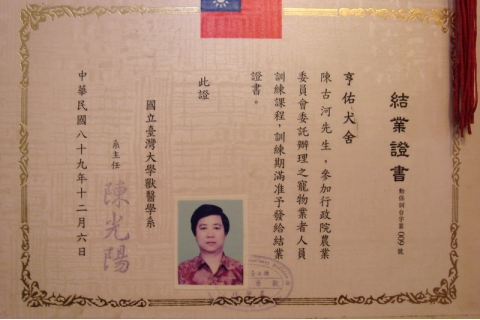 結業證書
動保訓台字第009號
亨佑犬舍
陳古河先生，參加行政院農業
委員會委託辦理之寵物業者人員
訓練課程，訓練期滿准予發給結業
證書。
此證
國立臺灣大學獸醫學系
系主任 陳光陽
中華民國八十九年十二月六日